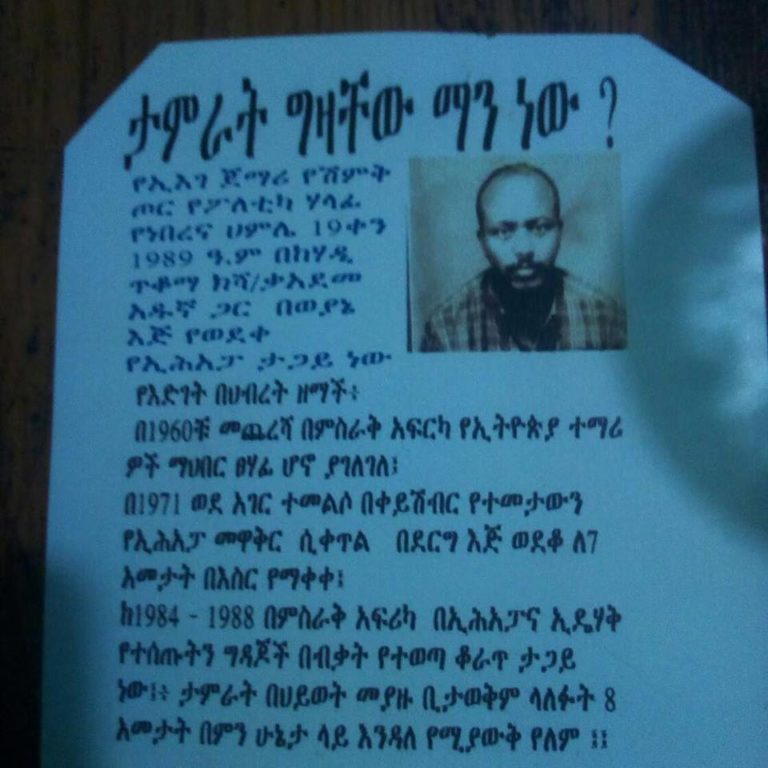 ታምራት ግዛቸው ማን ነው ?
የኢአገ ጀማሪ የሽምቅ
ጦር የፖለቲካ ሃላፊ
የነበረና ሀምሌ 19ቀን
1989 ዓ.ም በከሃዲ
ጥቆማ ክሻ/ቃአደመ
አዱኛ ጋር በወያኔ
እጅ የወደቀ
የኢሕአፓ ታጋይ ነው
የእድገት በህብረት ዘማች፥
በ1960ቹ መጨረሻ በምስራቅ አፍርካ የኢትዮጵያ ተማሪ
ዎች ማህበር ፀሃፊ ሆኖ ያገለገለ፤
በ1971 ወደ አገር ተመልሶ በቀይሽብር የተመታውን
የኢሕአፓ መዋቅር ሲቀጥል በደርግ እጅ ወደቆ ለ7
አመታት በእስር የማቀቀ፤
ከ1984 - 1988 በምስራቅ አፍሪካ በኢሕአፓና ኢዴሃቅ
የተሰጡትን ግዳጆች በብቃት የተወጣ ቆራጥ ታጋይ
ነው፤፥ ታምራት በህይወት መያዙ ቢታወቅም ላለፉት 8
አመታት በምን ሁኔታ ላይ እንዳለ የሚያውቅ የለም ፤፤